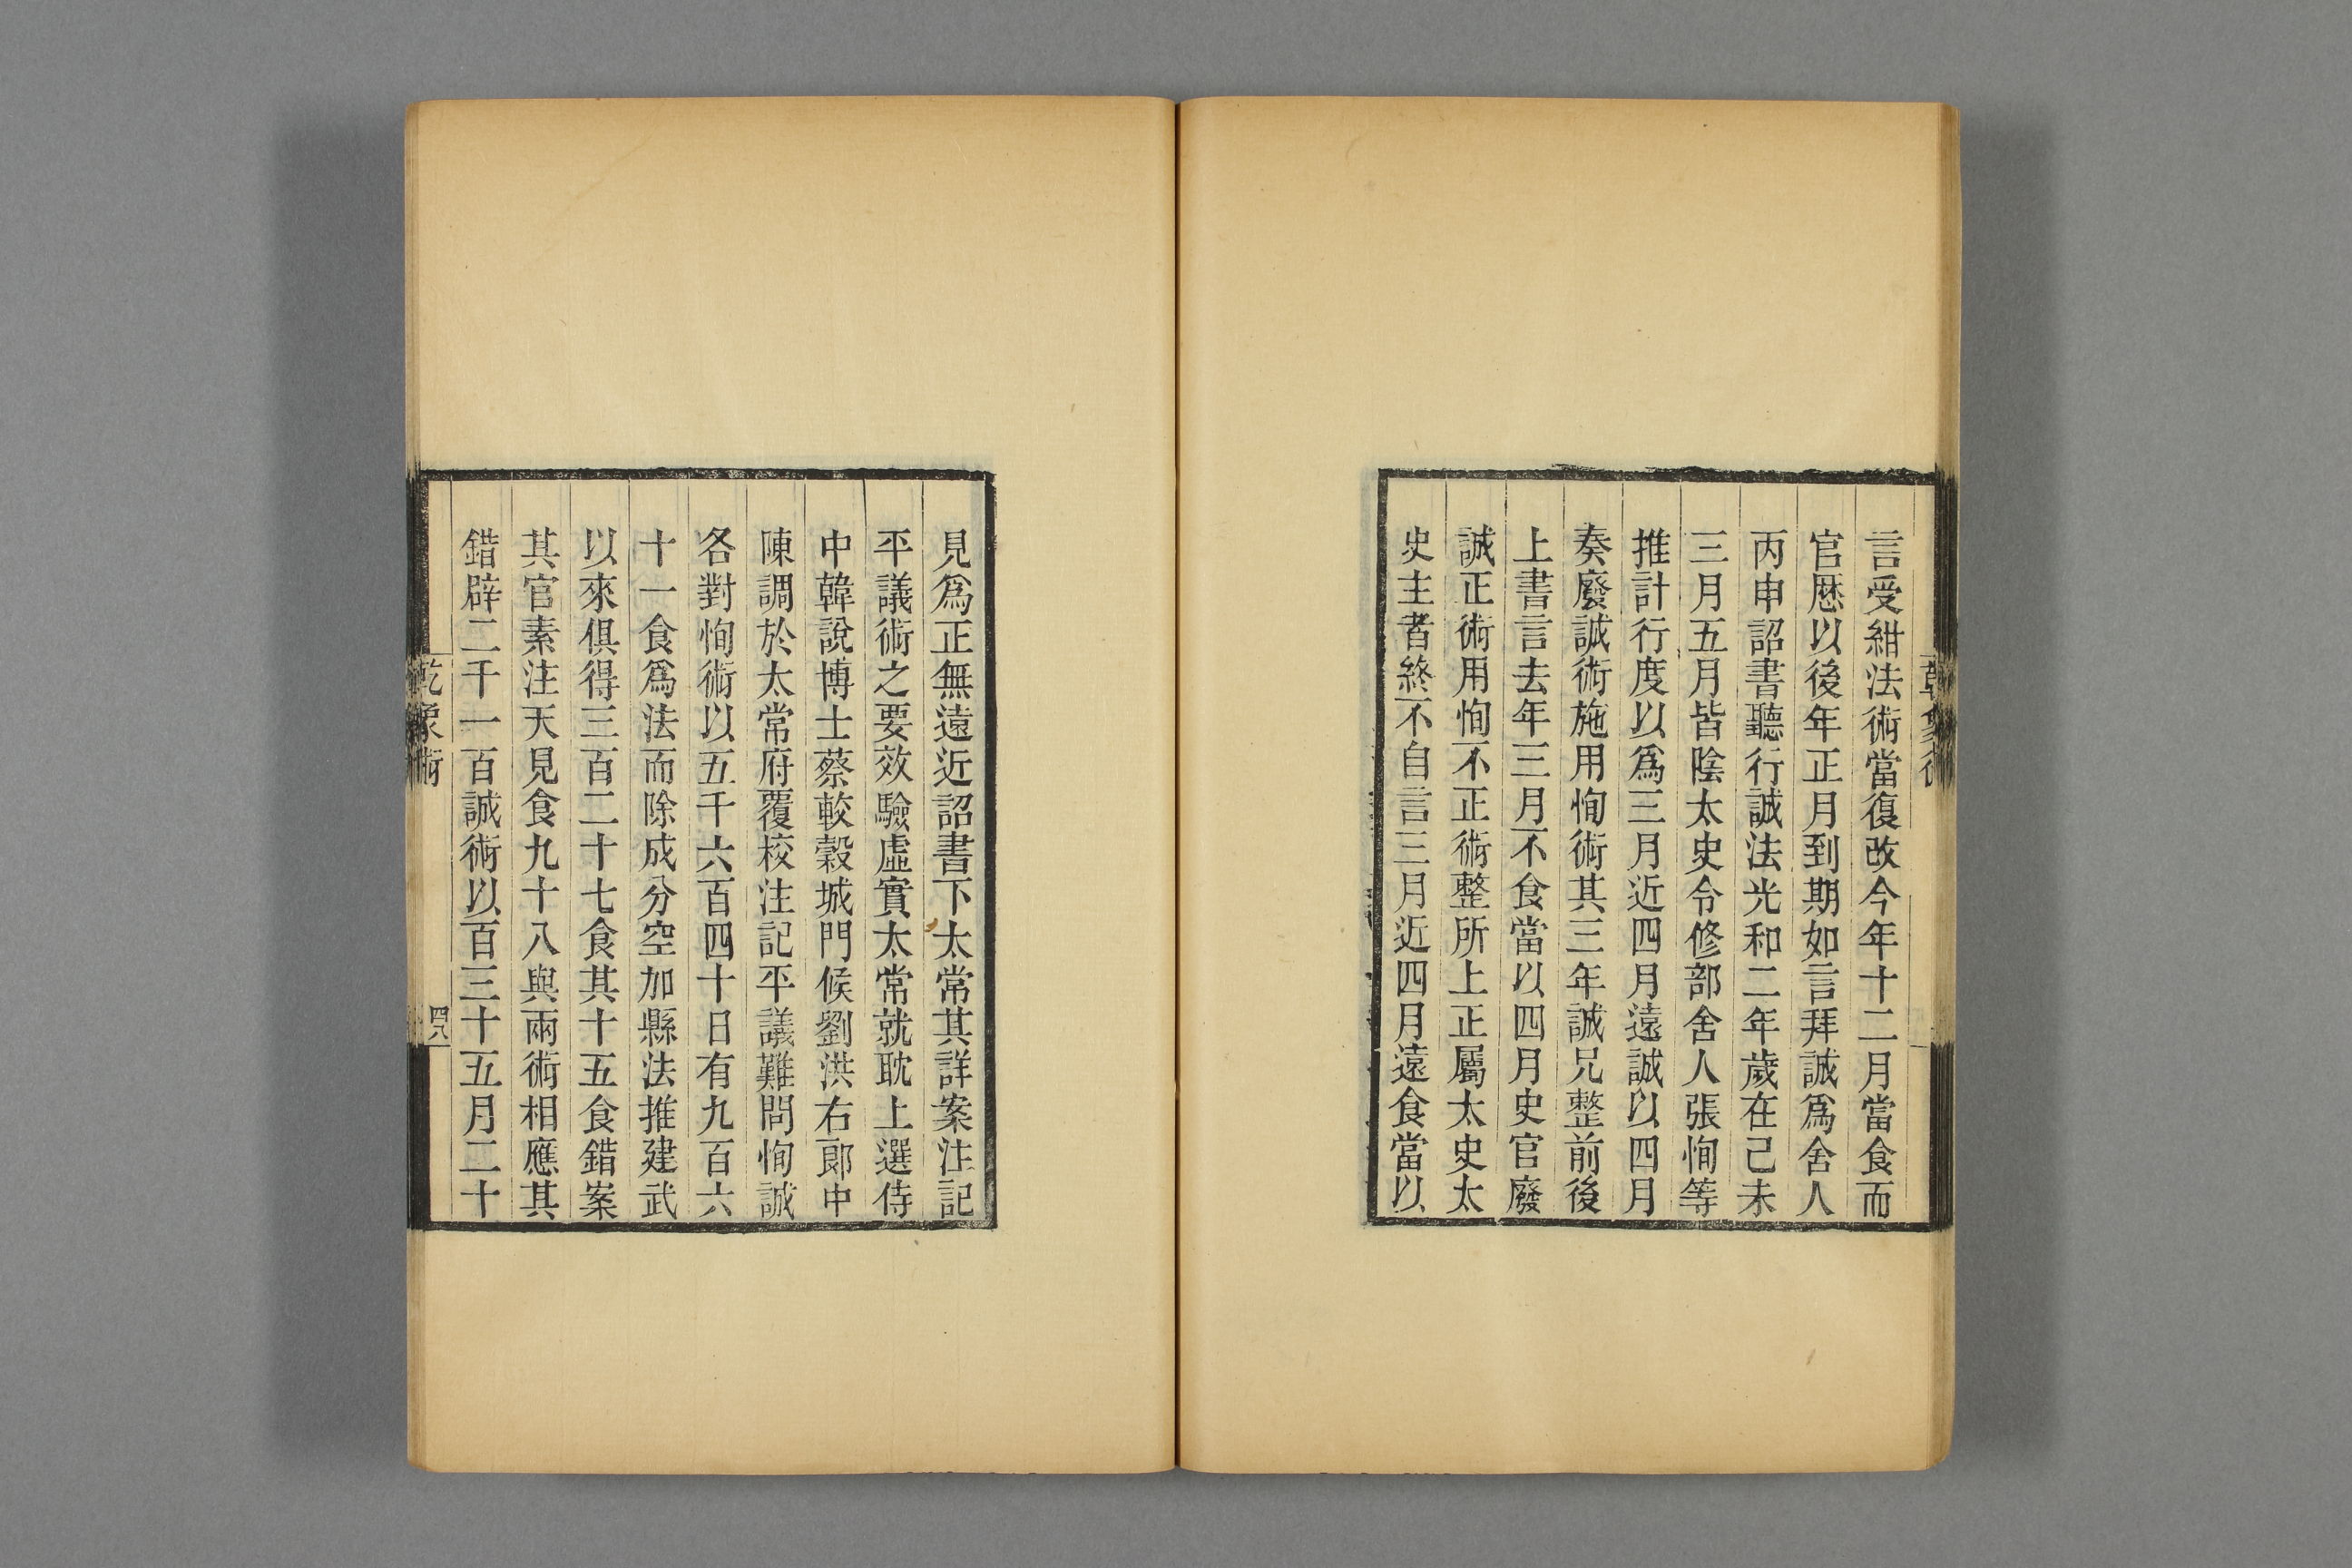 言受紺法術當復改今年十二月當食而
官厯以後年正月到期如言拜誠爲舍人
丙申詔書聽行誠法光和二年歲在己未
三月五月皆陰太史令修部舍人張恂等
推計行度以爲三月近四月遠誠以四月
奏廢誠術施用恂術其三年誠兄整前後
上書言去年三月不食當以四月史官廢
誠正術用恂不正術整所上正屬太史太
史主者終不自言三月近四月遠食當以
見爲正無遠近詔書下太常其詳案注記
平議術之要效驗虛實太常就耽上選侍
中韓說博士蔡較穀城門候劉洪右郎中
陳調於太常府覆校注記平議難問恂誠
各對恂術以五千六百四十日有九百六
十一食爲法而除成分空加縣法推建武
以來俱得三百二十七食其十五食錯案
其官素注天見食九十八與兩術相應其
錯辟二千一百誠術以百三十五月二十
乾象術
四八